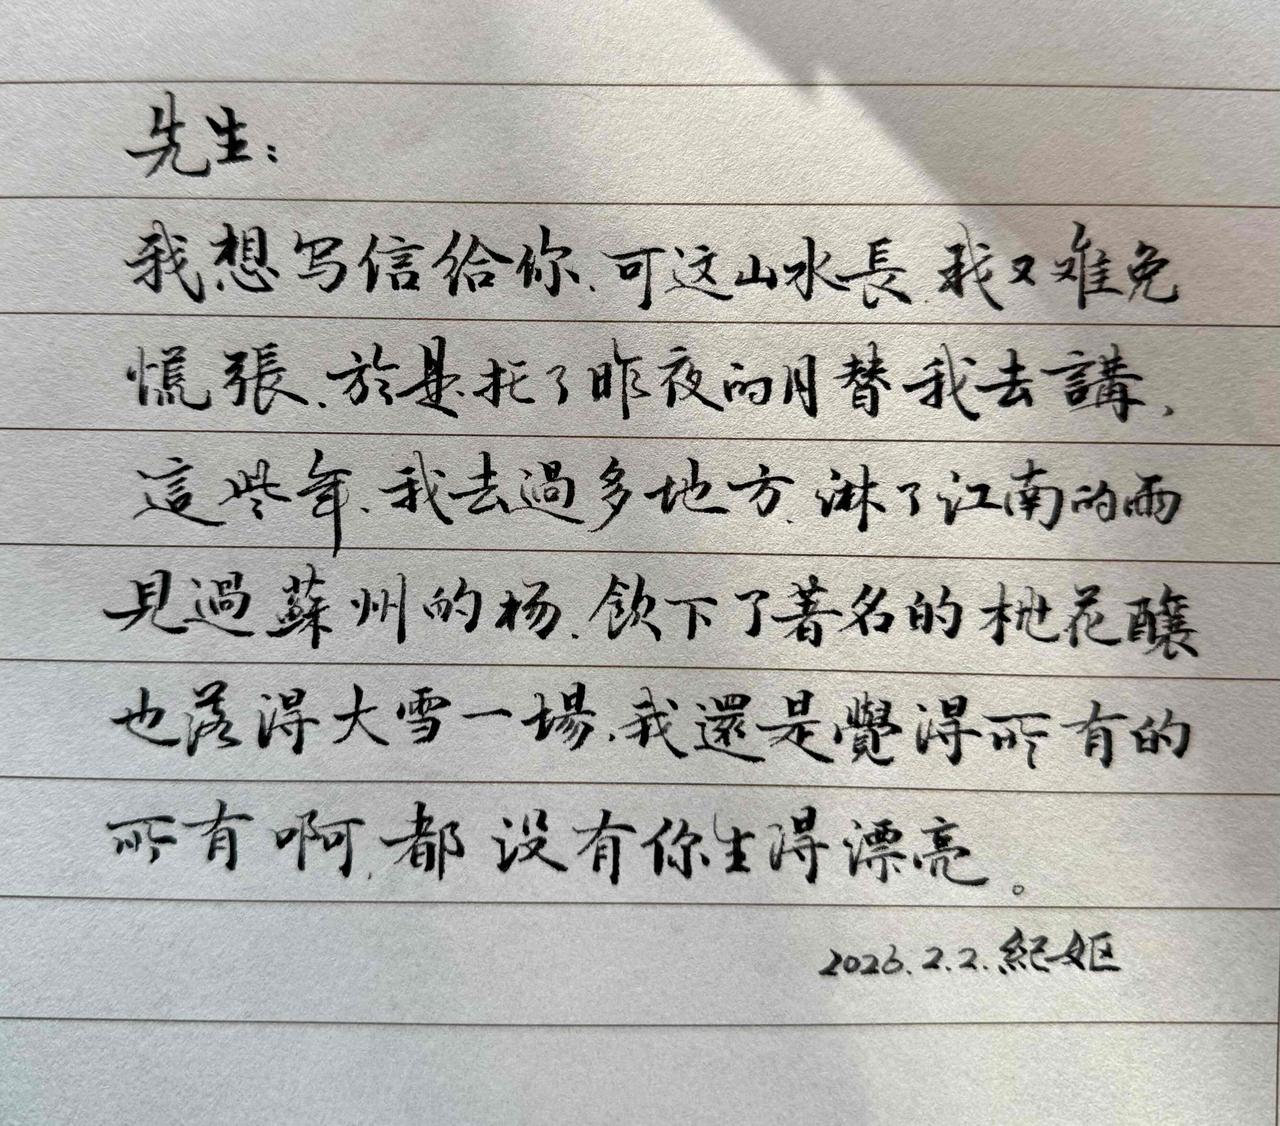 先生：
我想写信给你、可这山水長、我又难免
慌張、於是托了昨夜的月替我去講、
這些年、我去過多地方、淋了江南的雨
見過蘇州的杨、飲下了著名的桃花釀
也落得大雪一場、我還是覺得所有的
所有啊、都没有你生得漂亮。
2026.2.2.紀妪